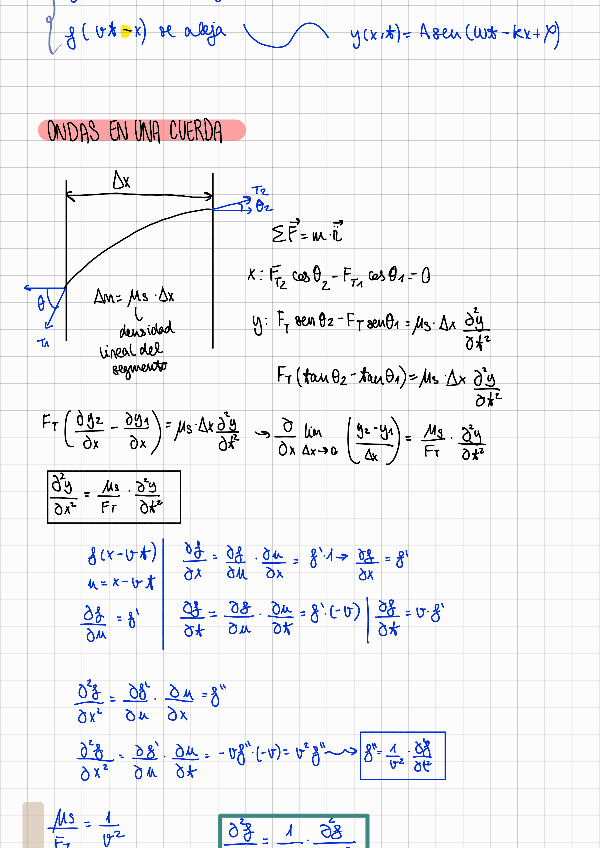 f(vt-x) se aleja
y(x,t) = A sen(ωt - kx + φ)
ONDAS EN UNA CUERDA
Δx
T2
θ2
θ
T1
Δm = μs · Δx
densidad
lineal del
segmento
Σ F⃗ = m · r̈⃗
x: F_T2 cosθ2 - F_T1 cosθ1 = 0
y: F_T senθ2 - F_T senθ1 = μs · Δx ∂²y/∂t²
F_T (tanθ2 - tanθ1) = μs · Δx ∂²y/∂t²
F_T (∂y2/∂x - ∂y1/∂x) = μs · Δx ∂²y/∂t² → ∂/∂x lim Δx→0 ((y2 - y1)/Δx) = μs/F_T · ∂²y/∂t²
∂²y/∂x² = μs/F_T · ∂²y/∂t²
f(x - vt)
u = x - vt
∂f/∂u = f'
∂f/∂x = ∂f/∂u · ∂u/∂x = f' · 1 → ∂f/∂x = f'
∂f/∂t = ∂f/∂u · ∂u/∂t = f' · (-v) | ∂f/∂t = v · f'
∂²f/∂x² = ∂f'/∂u · ∂u/∂x = f''
∂²f/∂x² = ∂f'/∂u · ∂u/∂t = -vf'' · (-v) = v² f'' → f'' = 1/v² · ∂²f/∂t²
μs/F_T = 1/v²
∂²f = 1 · ∂²f